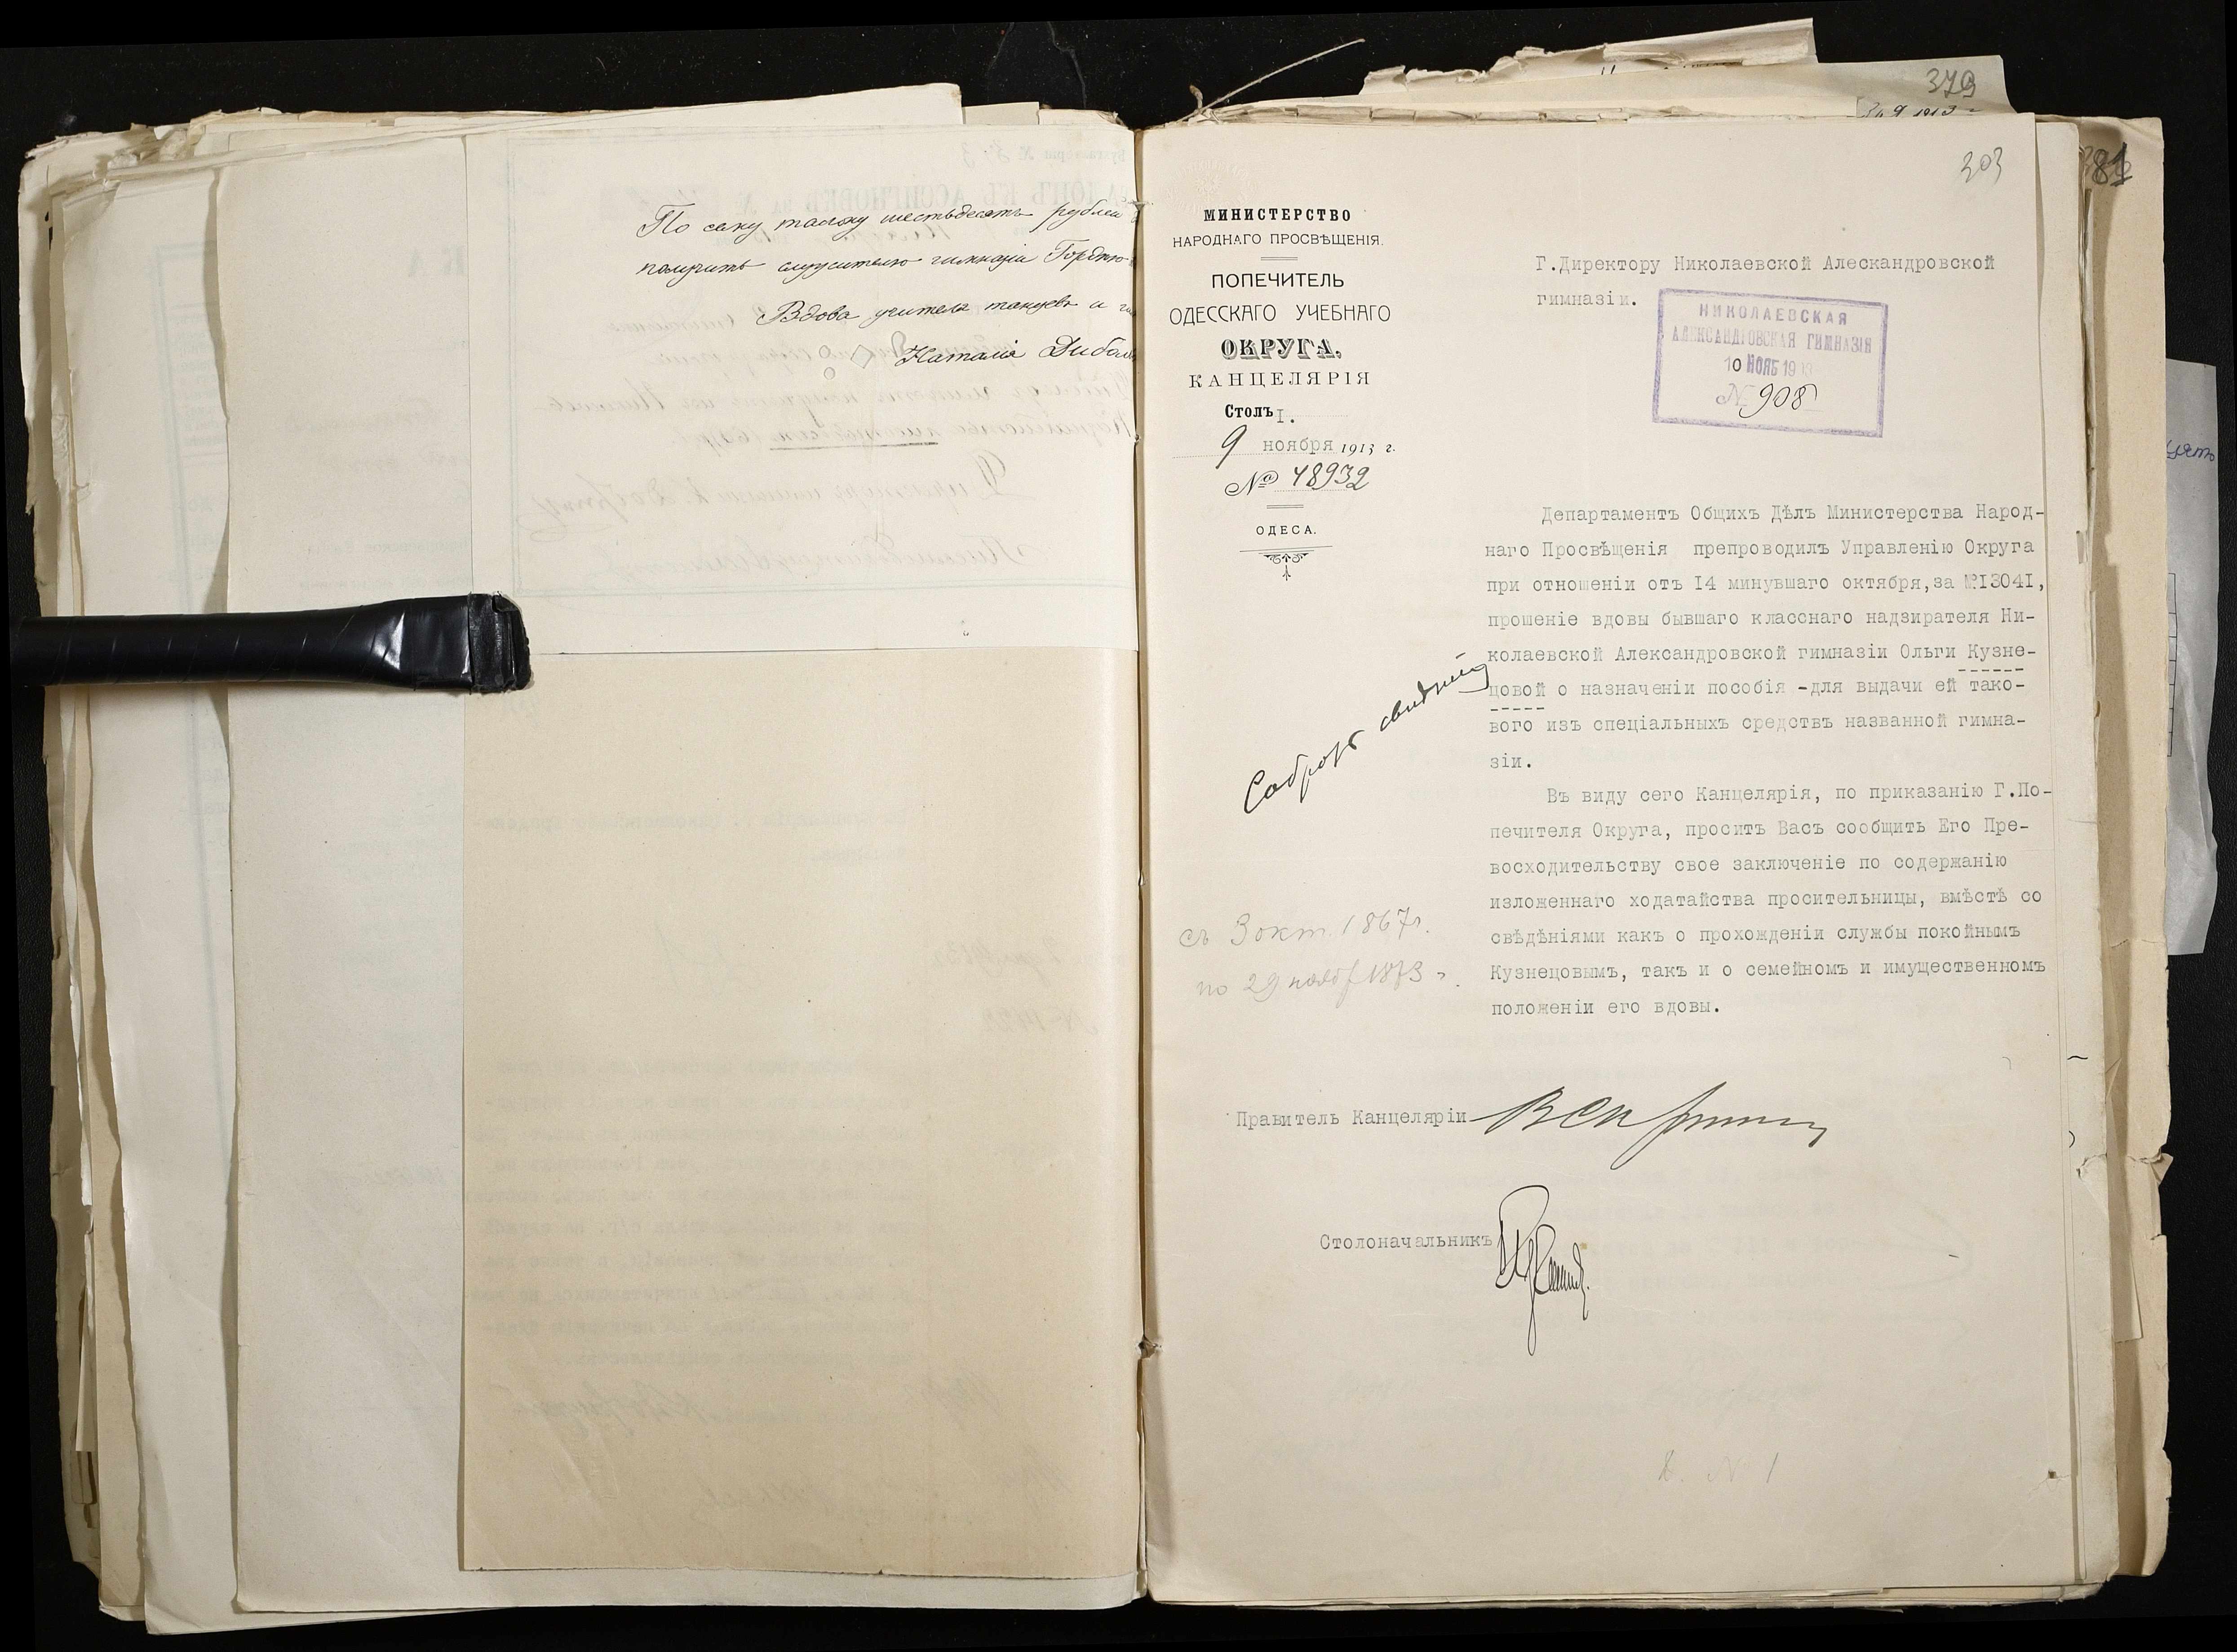 По сему талону шестьдесятъ рублей
получить служителю гимназіи Гордѣю
Вдова учителя танцевъ и
Наталія
379
303
МИНИСТЕРСТВО
НАРОДНАГО ПРОСВѢЩЕНІЯ.
ПОПЕЧИТЕЛЬ
ОДЕССКАГО УЧЕБНАГО
ОКРУГА,
КАНЦЕЛЯРІЯ
Столъ I.
9 ноября 1913 г.
№ 48932
ОДЕСА.
Г.Директору Николаевской Алескандровской
гимназіи.
НИКОЛАЕВСКАЯ
АЛЕКСАНДРОВСКАЯ ГИМНАЗІЯ
10 НОЯБ 191
№ 908
Департаментъ Общихъ Дѣлъ Министерства Народ-
наго Просвѣщенія препроводилъ Управленію Округа
при отношеніи отъ I4 минувшаго октября,за №I304I,
прошеніе вдовы бывшаго класснаго надзирателя Ни-
колаевской Александровской гимназіи Ольги Кузне-
цовой о назначеніи пособія -для выдачи ей тако-
вого изъ спеціальныхъ средствъ названной гимна-
зіи.
Въ виду сего Канцелярія, по приказанію Г.По-
печителя Округа, проситъ Васъ сообщить Его Пре-
восходительству свое заключеніе по содержанію
изложеннаго ходатайства просительницы, вмѣстѣ со
свѣдѣніями какъ о прохожденіи службы покойнымъ
Кузнецовымъ, такъ и о семейномъ и имущественномъ
положеніи его вдовы.
съ 3 окт. 1867г.
по 29 нояб 1873 г.
Правитель Канцеляріи
Столоначальникъ
№ 1